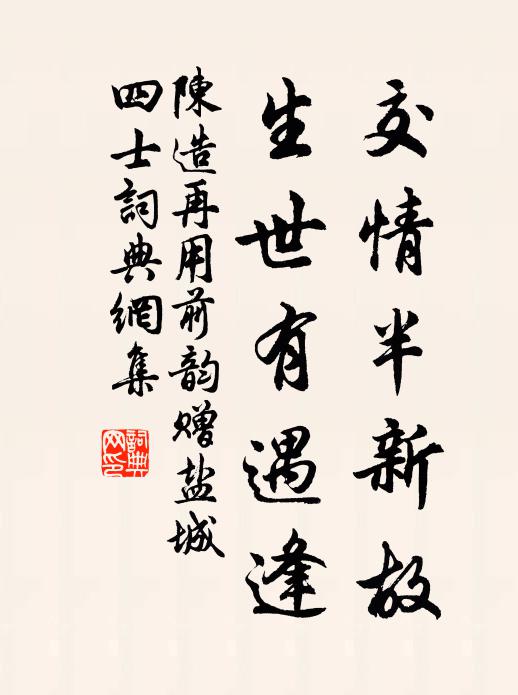 交情半新故
生世有遇逢
陳造再用前韵贈盐城
四士詞典網集
詞典网印